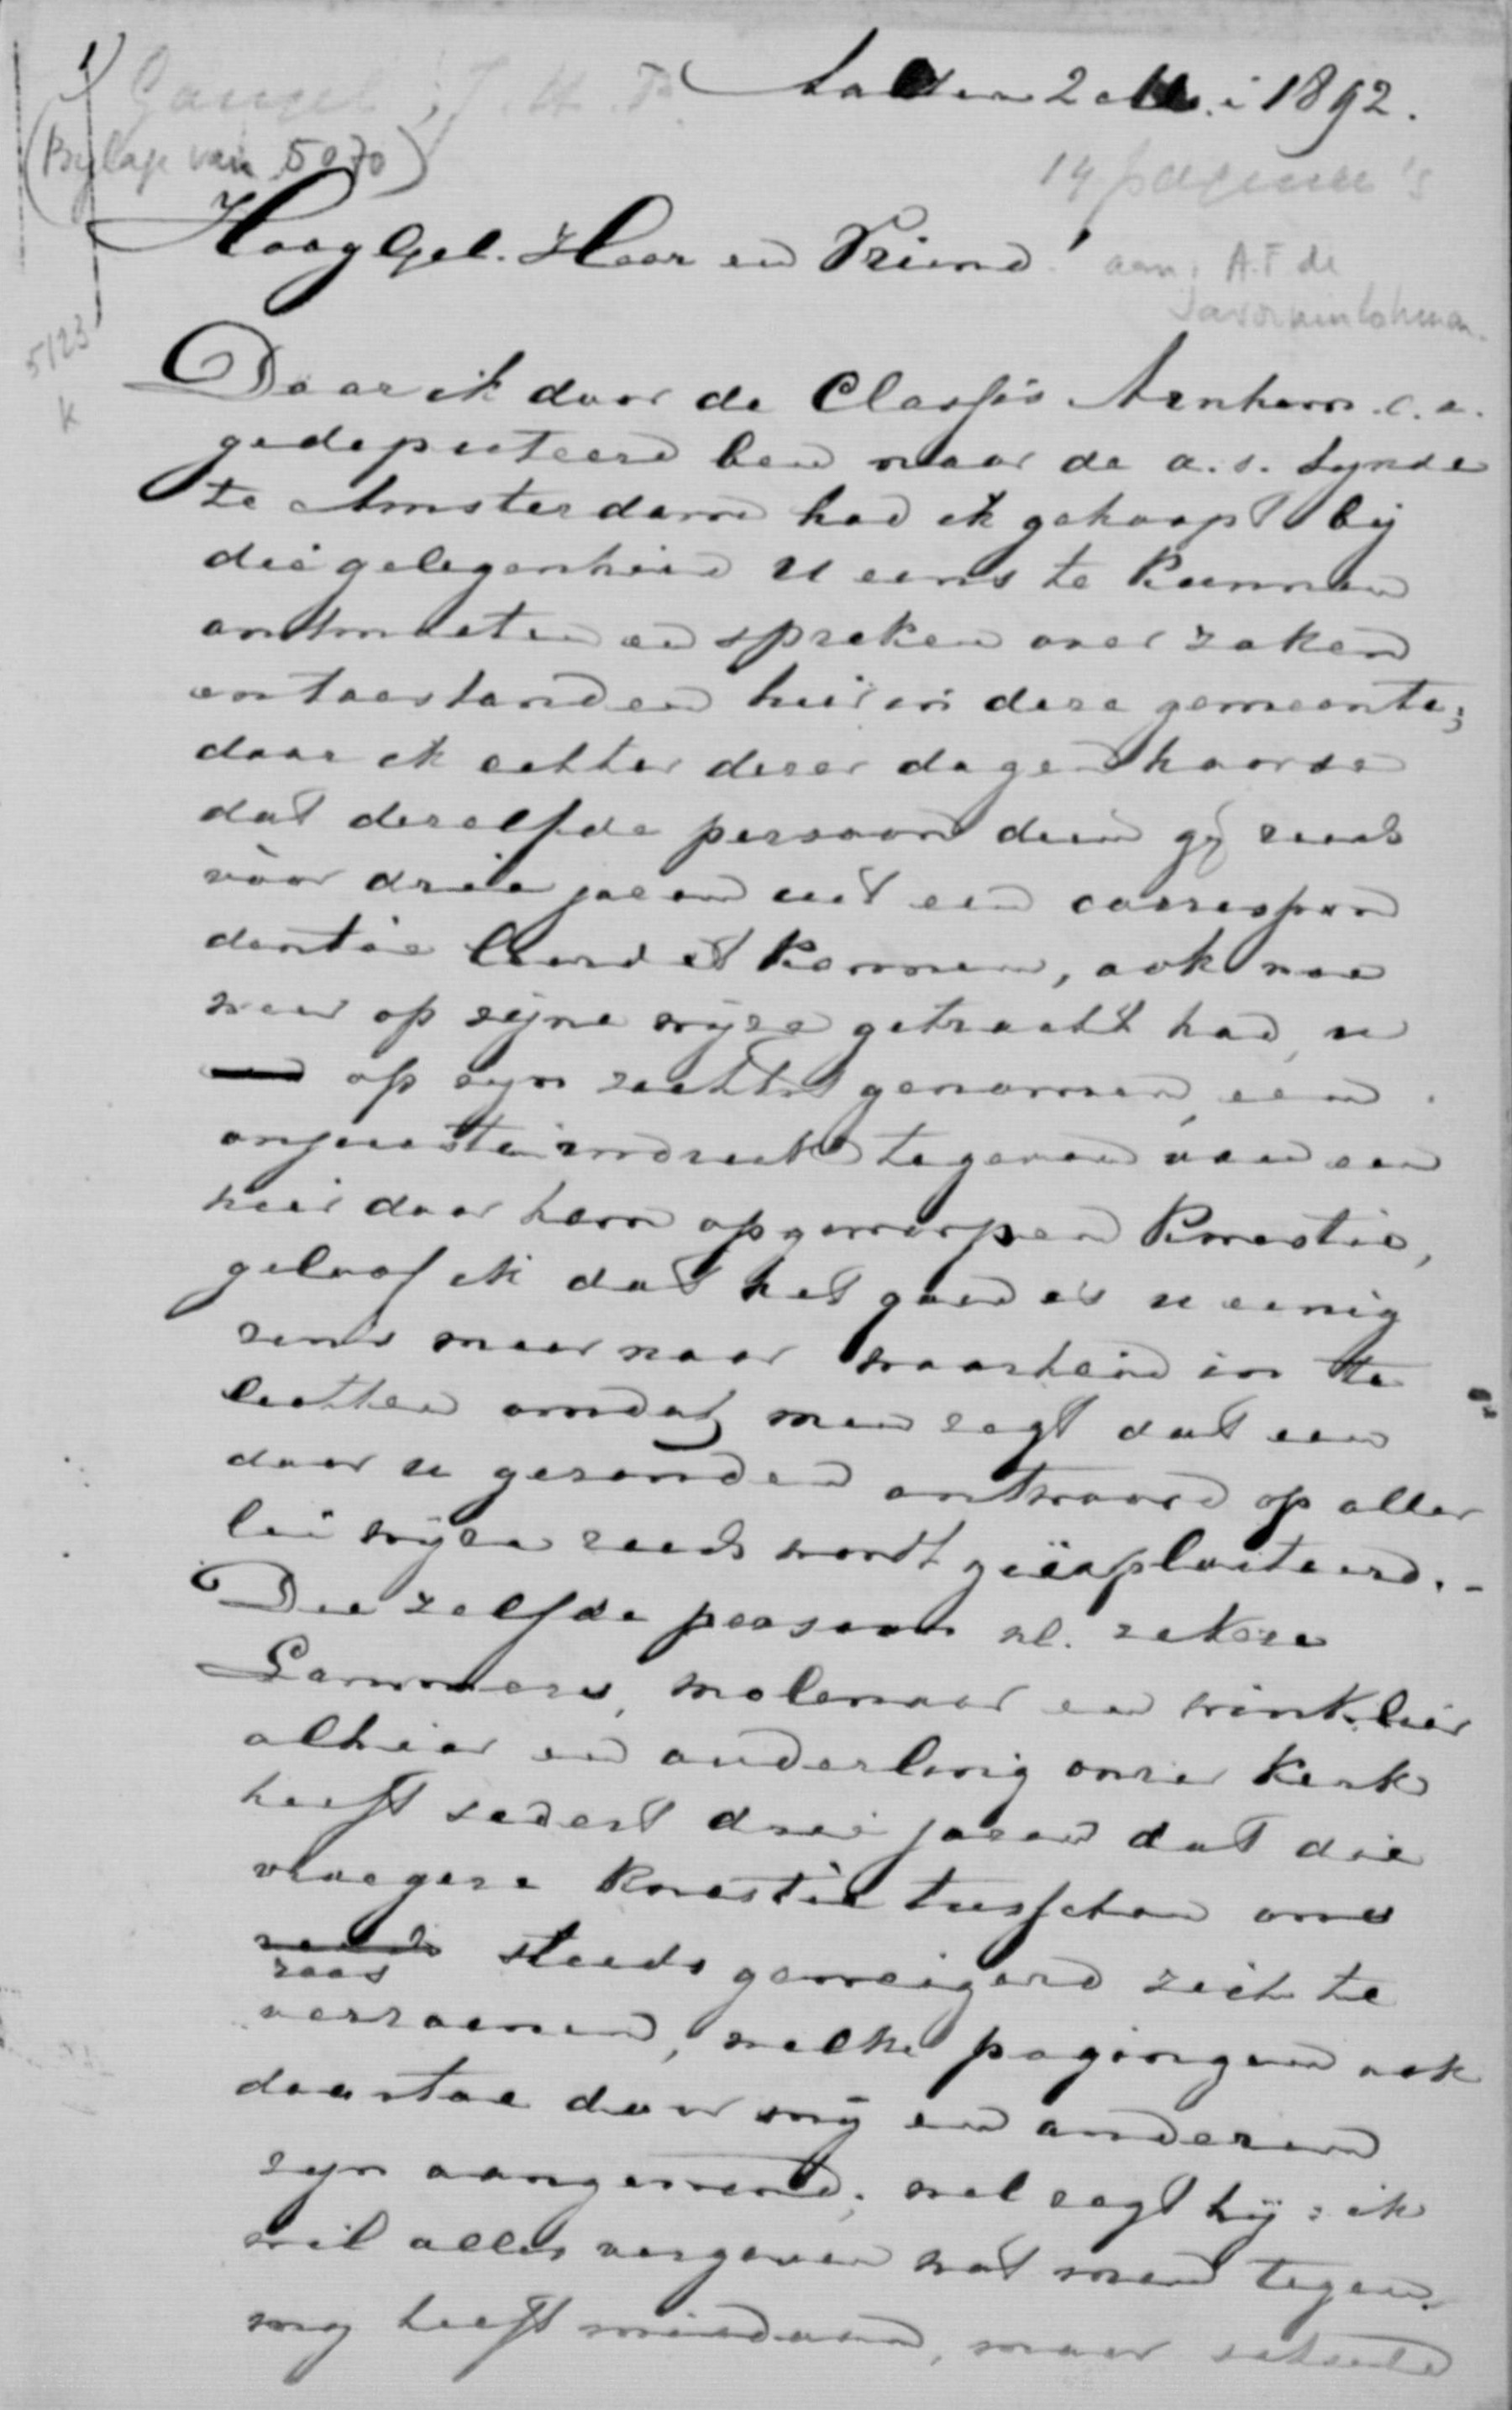 1)
Aalten 2 Mei 1892.
(Bijlage van 5070)
14 pagina's
HoogGel. Heer en Vriend!
aan: A.F de
Savornin Lohman.
5123
k
Daar ik door de Classis Arnhem c.a.
gedeputeerd ben naar de a.s. Synode
te Amsterdam had ik gehoopt bij
die gelegenheid U eens te kunnen
ontmoeten en spreken over zaken
en toestanden hier in deze gemeente;
daar ik echter dezer dagen hoorde
dat dezelfde persoon dien gij reeds
vóór drie jaren uit een correspon
dentie leerdet kennen, ook nu
weer op zijne wijze getracht had, u
op zijn zachtst genomen, een
onjuiste indruk te geven van een
hier door hem opgeworpen kwestie,
geloof ik dat het goed is u eenig
zins meer naar waarheid in te
lichten omdat men zegt dat een
door u gezonden antwoord op aller
lei wijze reeds wordt geëxploiteerd. -
Die zelfde persoon nl. zekere
Lammers, molenaar en winkelier
alhier en ouderling onzer kerk
heeft sedert drie jaren dat die
vroegere kwestie tusschen ons
was steeds geweigerd zich te
verzoenen, welke pogingen ook
daartoe door mij en anderen
zijn aangewend; wel zegt hij: ik
wil alles vergeven wat men tegen
mij heeft misdaan, maar schuld